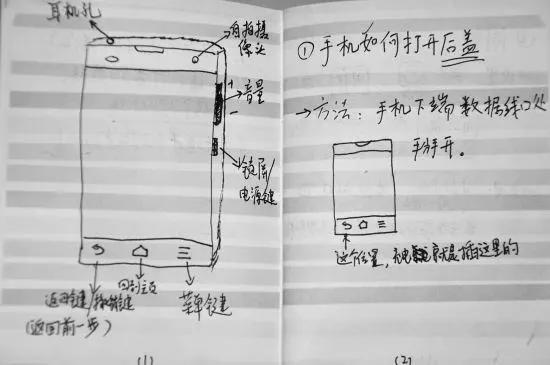 耳机孔
自拍摄
像头
+
音量
-
锁屏/
电源键
返回键/
(返回前一步)
回到主页
菜单键
(1)
① 手机如何打开后盖
→方法：手机下端数据线口处
手掰开。
这个位置，充电就是插这里的
(2)